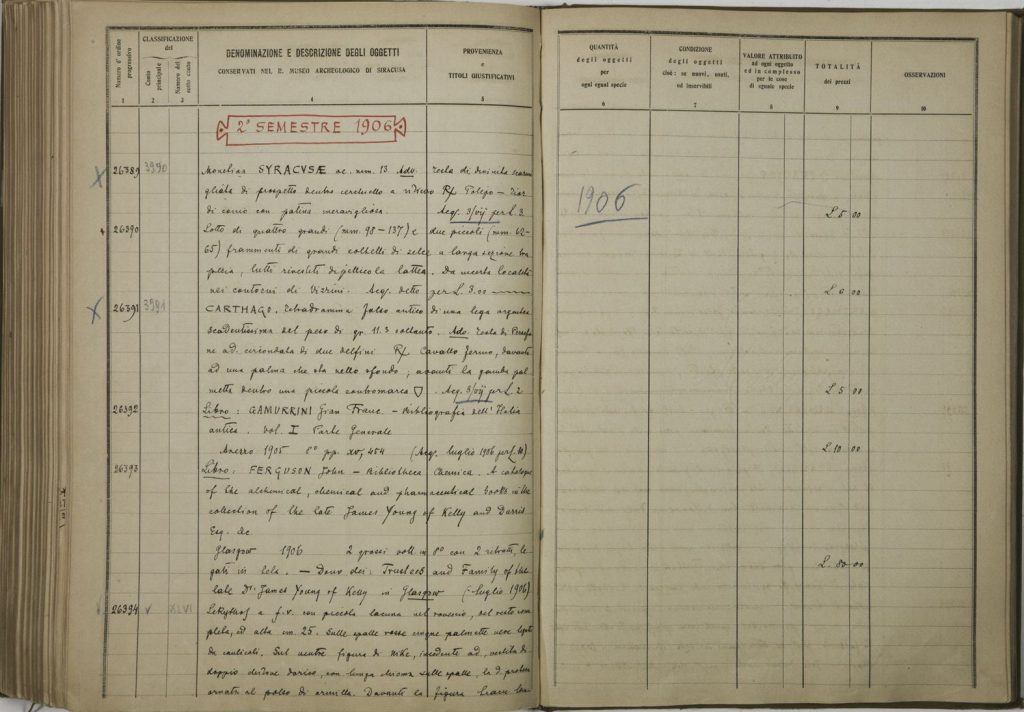 Numero d'ordine progressivo
CLASSIFICAZIONE del
Conto principale
Numero del sotto conto
DENOMINAZIONE E DESCRIZIONE DEGLI OGGETTI
CONSERVATI NEL R. MUSEO ARCHEOLOGICO DI SIRACUSA
PROVENIENZA
e
TITOLI GIUSTIFICATIVI
1 2 3 4 5
2° SEMESTRE 1906
26389 3990 SYRACVSÆ ae. mm. 13 Adv. testa di divinità
gliata di prospetto dentro cerchiello a rilievo R/ Polipo
di conio con patina meravigliosa. Acq. 3/VII per L. 3
26390 Lotto di quattro grandi (mm. 98 – 137) e due piccoli (mm. 62-
65) frammenti di grandi coltelli di selce a larga sezione
tutti rivestiti di pellicola lattea. Da incerta località
nei contorni di Vizzini. Acq. detto per L. 3.00
26391 3991 CARTHAGO. Tetradramma falso antico di una lega argentea
scadentissima del peso di gr. 11.3 soltanto. Adv. testa di Persefo-
ne ad. circondata di due delfini R/ Cavallo fermo, davanti
ad una palma che sta nello sfondo; avanti la gamba
dentro una piccola contromarca Acq. 3/VII per L. 2
26392 Libro: GAMURRINI Gian Franc. – Bibliografia dell'Italia
antica. Vol. I Parte Generale
Arezzo 1905 8° pp. XV, 454 (Acq. luglio 1906 per L. 10)
26393 Libro: FERGUSON John – Bibliotheca Chemica. A catalogue
of the alchemical, chemical and pharmaceutical books in the
collection of the late James Young of Kelly and Durris
Esq. &c.
Glasgow 1906 2 grossi voll. in 8° con 2 ritratti, le-
gati in tela. – Dono dei: Trustees and Family of the
late Dr. James Young of Kelly in Glasgow (luglio 1906)
26394 V XLVI Lekythos a f. n. con piccola lacuna nel rovescio, del resto com-
pleta, ed alta cm. 25. Sulle spalle rosse cinque palmette nere legate
da caulicoli. Sul ventre figura di Nike, incedente ad, vestita di
doppio chitone dorico, con lunga chioma sulle spalle, la d. protesa
ornata al polso di armilla. Davanti la figura
QUANTITÀ
degli oggetti
per
ogni egual specie
CONDIZIONE
degli oggetti
cioè: se nuovi, usati,
od inservibili
VALORE ATTRIBUITO
ad ogni oggetto
ed in complesso
per le cose
di eguale specie
TOTALITÀ
dei prezzi
OSSERVAZIONI
6 7 8 9 10
1906
L. 5 00
L. 6 00
L. 5 00
L. 10 00
L. 80 00